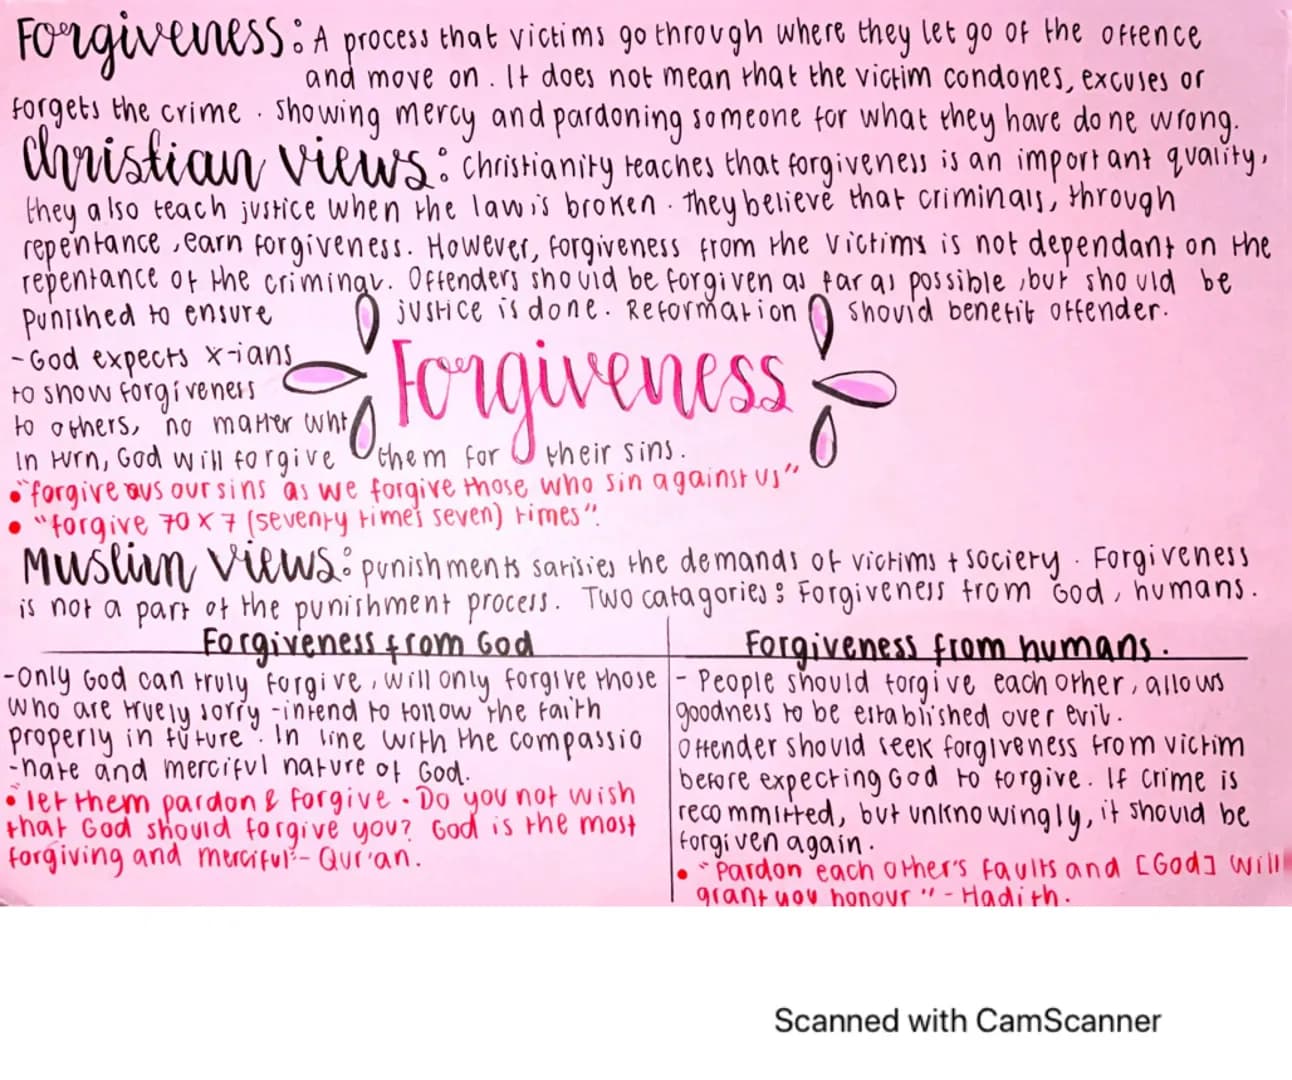 Forgiveness: A process that victims go through where they let go of the offence
and move on. It does not mean that the victim condones, excuses or
forgets the crime. Showing mercy and pardoning someone for what they have done wrong.
Christian views: Christianity teaches that forgiveness is an important quality,
they also teach justice when the law is broken. They believe that criminals, through
repentance, earn forgiveness. However, forgiveness from the victims is not dependant on the
repentance of the criminal. Offenders should be forgiven as far as possible, but should be
punished to ensure justice is done. Reformation should benefit offender.
-God expects X-ians
to show forgiveness
to others, no matter wht
Forgiveness
In turn, God will forgive them for their sins.
• "forgive us our sins as we forgive those who sin against us"
• "forgive 70 x 7 (seventy times seven) times".
Muslim views: punishments satisies the demands of victims + society. Forgiveness
is not a part of the punishment process. Two catagories: Forgiveness from God, humans.
Forgiveness from God
-Only God can truly forgive, will only forgive those
who are truely sorry -intend to follow the faith
properly in future. In line with the compassio
-nate and merciful nature of God.
• "let them pardon & forgive. Do you not wish
that God should forgive you? God is the most
forgiving and merciful" - Qur'an.
Forgiveness from humans.
- People should forgive each other, allows
goodness to be established over evil.
Offender should seek forgiveness from victim
before expecting God to forgive. If crime is
recommitted, but unknowingly, it should be
forgiven again.
• "Pardon each other's faults and [God] will
grant you honour" - Hadith.
Scanned with CamScanner